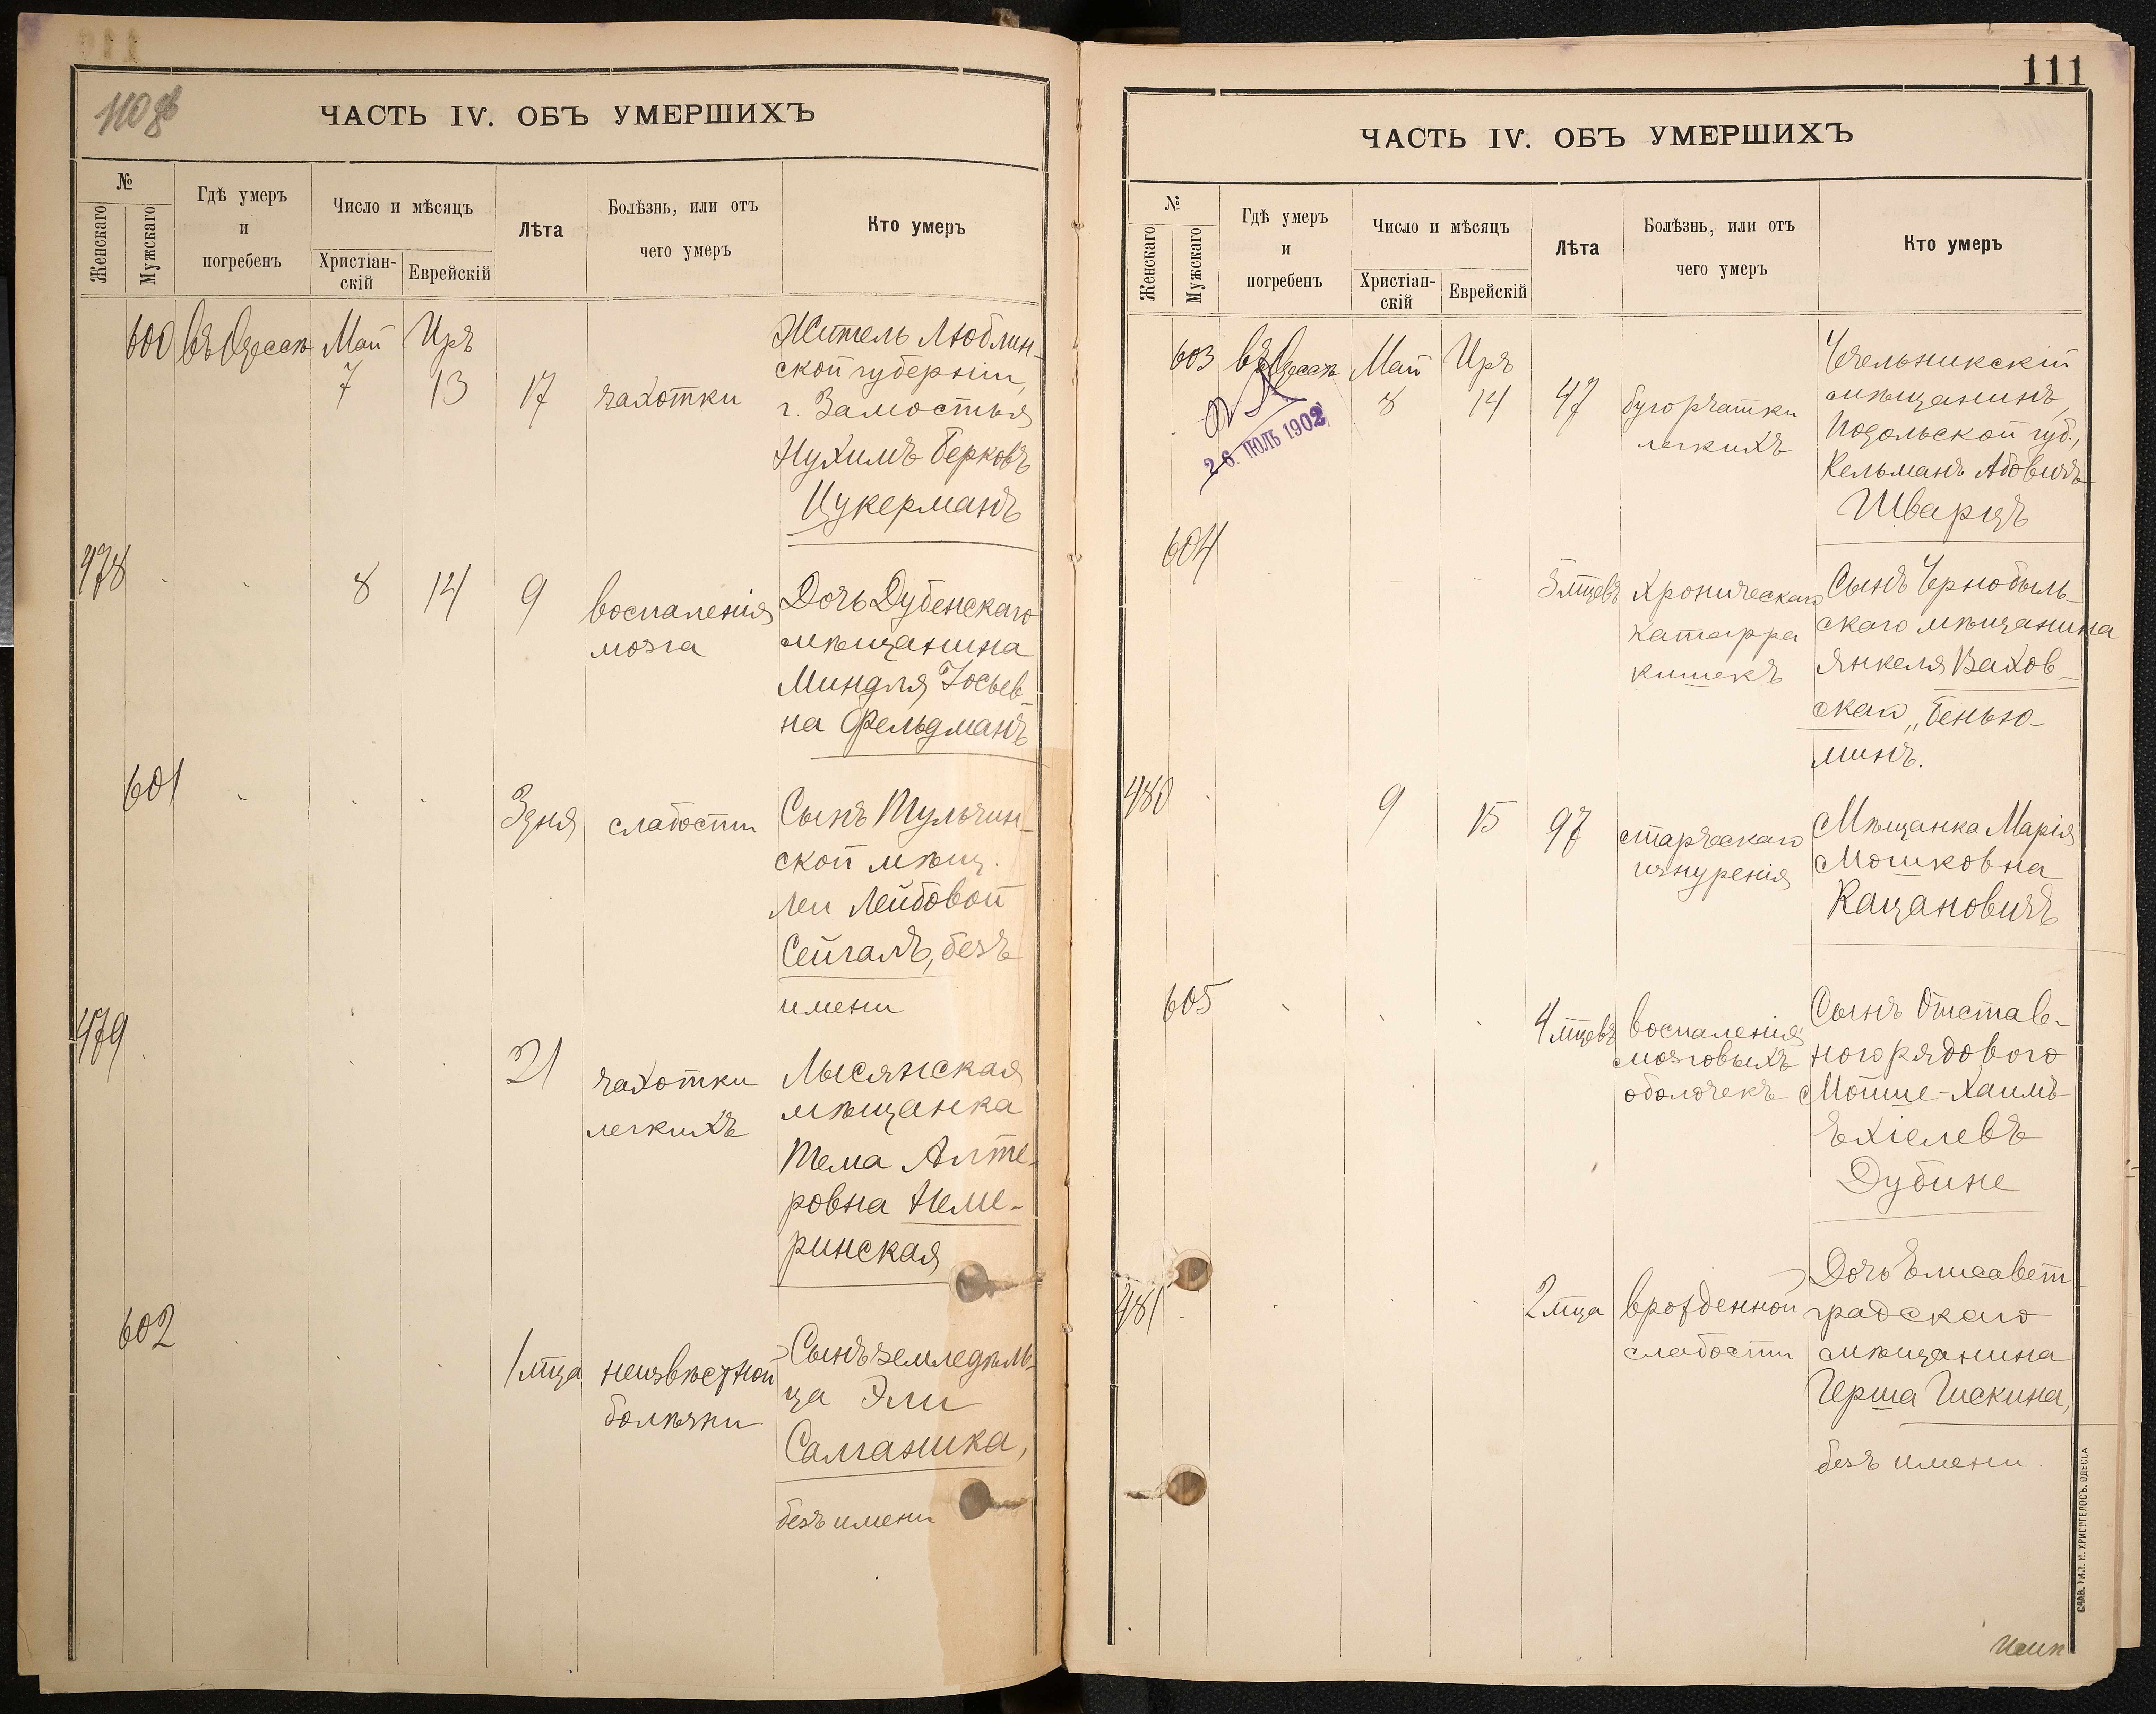 110 об
ЧАСТЬ IV. ОБЪ УМЕРШИХЪ
№
Женскаго
Мужскаго
Гдѣ умеръ
и
погребенъ
Число и мѣсяцъ
Христіан-
скій
Еврейскій
Лѣта
Болѣзнь, или отъ
чего умеръ
Кто умеръ
600 въ Одессѣ Май Иръ
7 13 17 чахотки
Житель Люблин-
ской губерніи,
г. Замостья
Нухимъ Берковъ
Цукерманъ
478 8 14 9 воспаленія
мозга
Дочь Дубенскаго
мѣщанина
Миндля Іосьев-
на Фельдманъ
601 3 дня слабости
Сынъ Тульчин-
ской мѣщ.
Леи Лейбовой
Сейгалъ, безъ
имени
479 21 чахотки
легкихъ
Лысянская
мѣщанка
Тема Алте-
ровна Неме-
ринская
602 1 мца неизвѣстной
болѣзни
Сынъ земледѣль-
ца Эли
Салганика,
безъ имени
111
ЧАСТЬ IV. ОБЪ УМЕРШИХЪ
№
Женскаго
Мужскаго
Гдѣ умеръ
и
погребенъ
Число и мѣсяцъ
Христіан-
скій
Еврейскій
Лѣта
Болѣзнь, или отъ
чего умеръ
Кто умеръ
603 въ Одессѣ Май Иръ
8 14 47 бугорчатки
легкихъ
26 ІЮЛЬ 1902
Чечельникскій
мѣщанинъ,
Подольской губ.,
Кельманъ Абовичъ
Шварцъ
604 5 мцевъ хроническаго
катарра
кишекъ
Сынъ Чернобыль-
скаго мѣщанина
Янкеля Вахов-
скаго, Бенью-
минъ.
480 9 15 97 старческаго
изнуренія
Мѣщанка Марія
Мошковна
Кацановичъ
605 4 мцевъ воспаленія
мозговыхъ
оболочекъ
Сынъ Отстав-
ного рядового
Мойше-Хаимъ
Ехіелевъ
Дубине
481 2 мца врожденной
слабости
Дочь Елисавет-
градскаго
мѣщанина
Герша Гискина,
безъ имени.
СЛАВ. ТИП. Н. ХРИСОГЕЛОСЪ, ОДЕССА